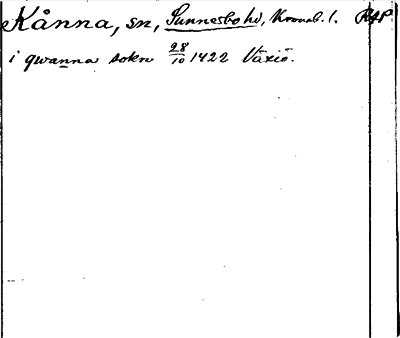 Kånna, sn, Sunnesbo hd, Kronob. l. RAP
i qwanna sokn 28/10 1422 Växiö.